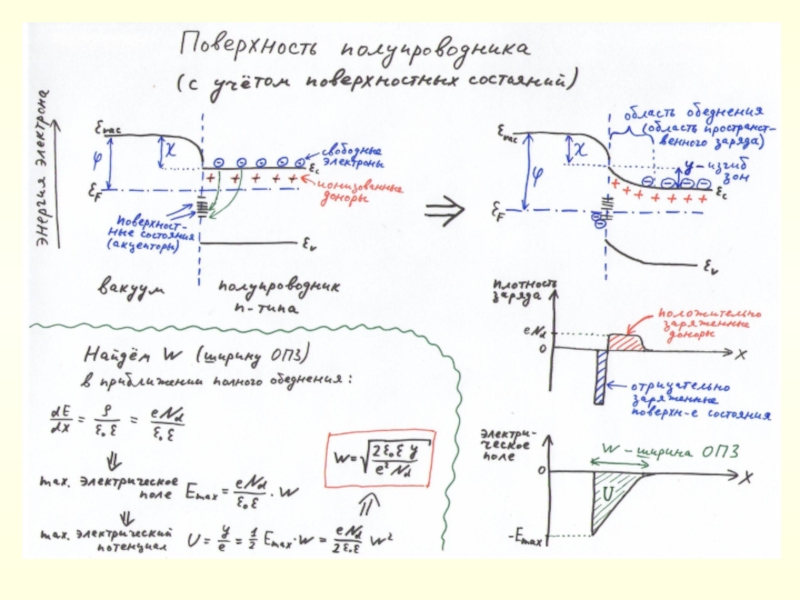 Поверхность полупроводника
(с учётом поверхностных состояний)
Энергия электрона
Evac
φ
χ
EF
свободные
электроны
Ec
ионизованные
доноры
поверхност-
ные состояния
(акцепторы)
Ev
вакуум
полупроводник
n-типа
⇒
область обеднения
(область пространст-
венного заряда)
Evac
φ
χ
y-изгиб
зон
Ec
EF
Ev
плотность
заряда
eNd
0
x
положительно
заряженные
доноры
отрицательно
заряженные
поверхн-е состояния
электри-
ческое
поле
W-ширина ОПЗ
0
x
U
-Emax
Найдём W (ширину ОПЗ)
в приближении полного обеднения:
dE/dx = ρ/ε0ε = eNd/ε0ε
max. электрическое
поле Emax = eNd/ε0ε · W
max. электрический
потенциал U = y/e = 1/2 Emax·W = eNd/2ε0ε W²
W = √(2ε0ε y / e² Nd)